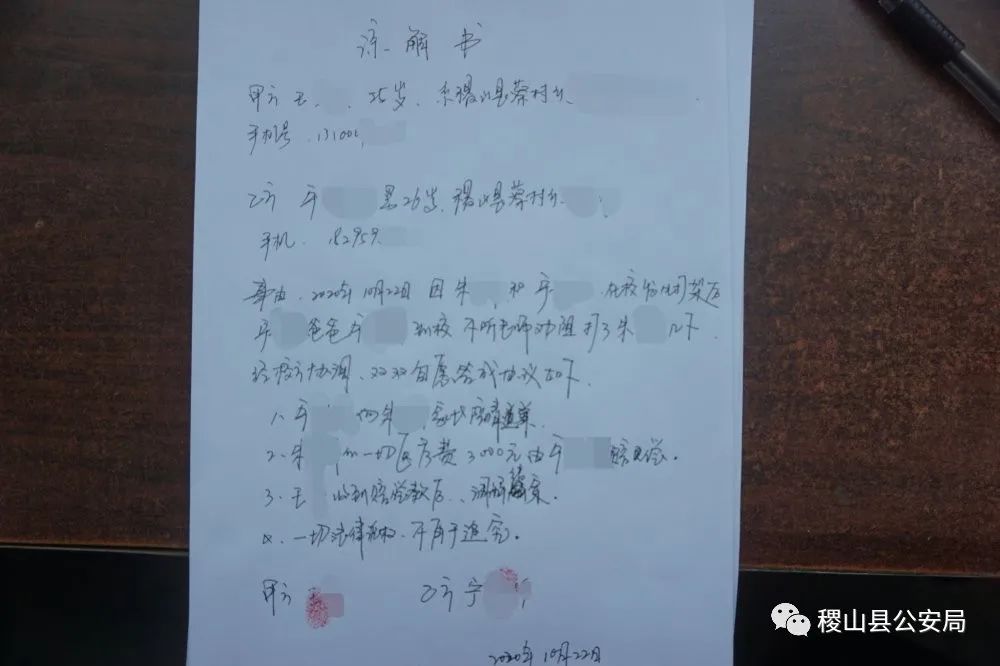 谅解书
甲方 王 25岁、系稷山县蔡村乡
手机号.131001
乙方 宁 男26岁,稷山县蔡村乡
手机.182959
事由.2020年10月22日因朱 和宁 在校发生打架后
宁 爸爸宁 到校不听老师劝阻打了朱 几下.
经校方协调、双方自愿达成协议如下
1、宁 向朱 家长赔礼道歉.
2、朱 的一切医疗费3000元由宁 赔偿。
3、王 收到赔偿款后、调解结案.
4、一切法律 不再于追究。
甲方 王 乙方宁
2020年10月22日
稷山县公安局